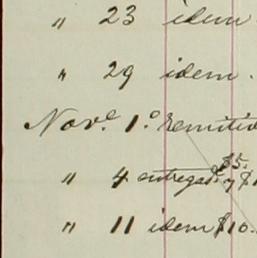 " 23 idem
" 29 idem.
Nove. 1.º remitid
$5.
" 4 entregad. y $1
" 11 idem $10.